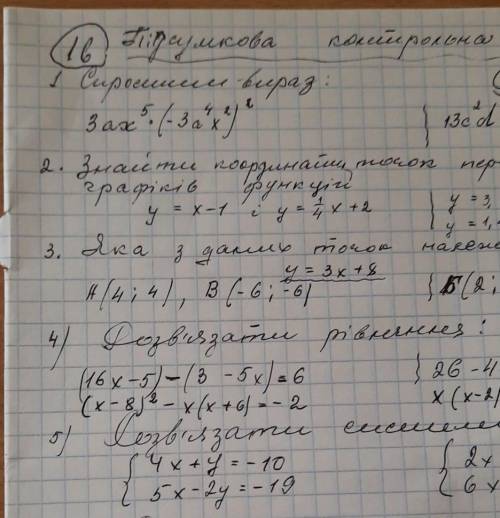 1в Підсумкова контрольна
1 Спростити вираз:
3ax⁵·(-3a⁴x²)² } 13c²d
2. Знайти координати точок пер
графіків функції
y = x-1 і y = ¼x+2 { y = 3,
{ y = 1,
3. Яка з даних точок належ
y = 3x+8
A(4; 4), B(-6; -6) } Б(2;
4) Розв'язати рівняння:
(16x-5)-(3-5x)=6 { 26-4
(x-8)²-x(x+6)=-2 x(x-2)
5) Розв'язати систем
{ 4x+y=-10 { 2x
{ 5x-2y=-19 { 6x